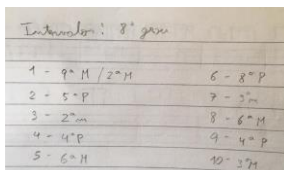 Intervalos: 8º grau
1 - 9ª M / 2ª M
2 - 5ª P
3 - 2ª m
4 - 4ª P
5 - 6ª M
6 - 8ª P
7 - 3ª m
8 - 6ª M
9 - 4ª P
10 - 3ª M